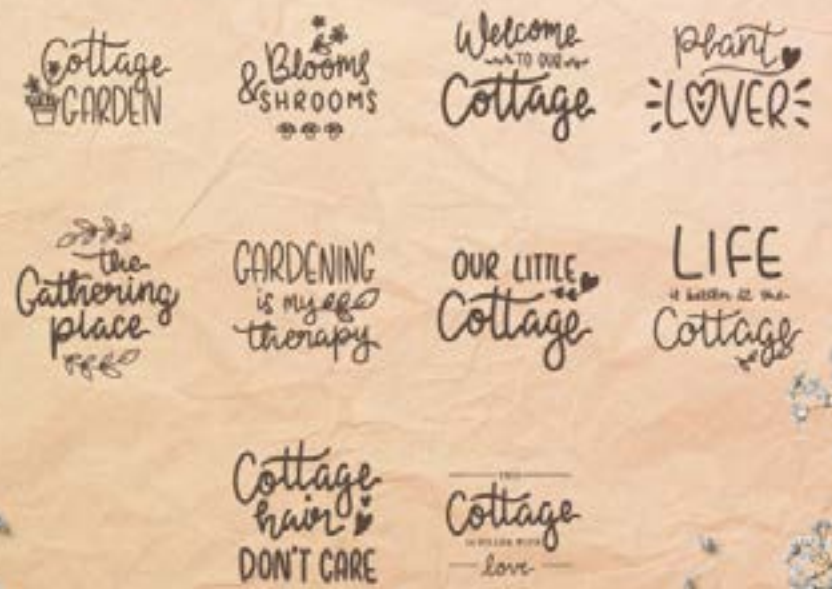 Cottage
GARDEN
Blooms
& SHROOMS
Welcome
TO OUR
Cottage
Plant
LOVER
the
Gathering
place
GARDENING
is my
therapy
OUR LITTLE
Cottage
LIFE
is better at the
Cottage
Cottage
hair
DON'T CARE
THIS
Cottage
IS FILLED WITH
love